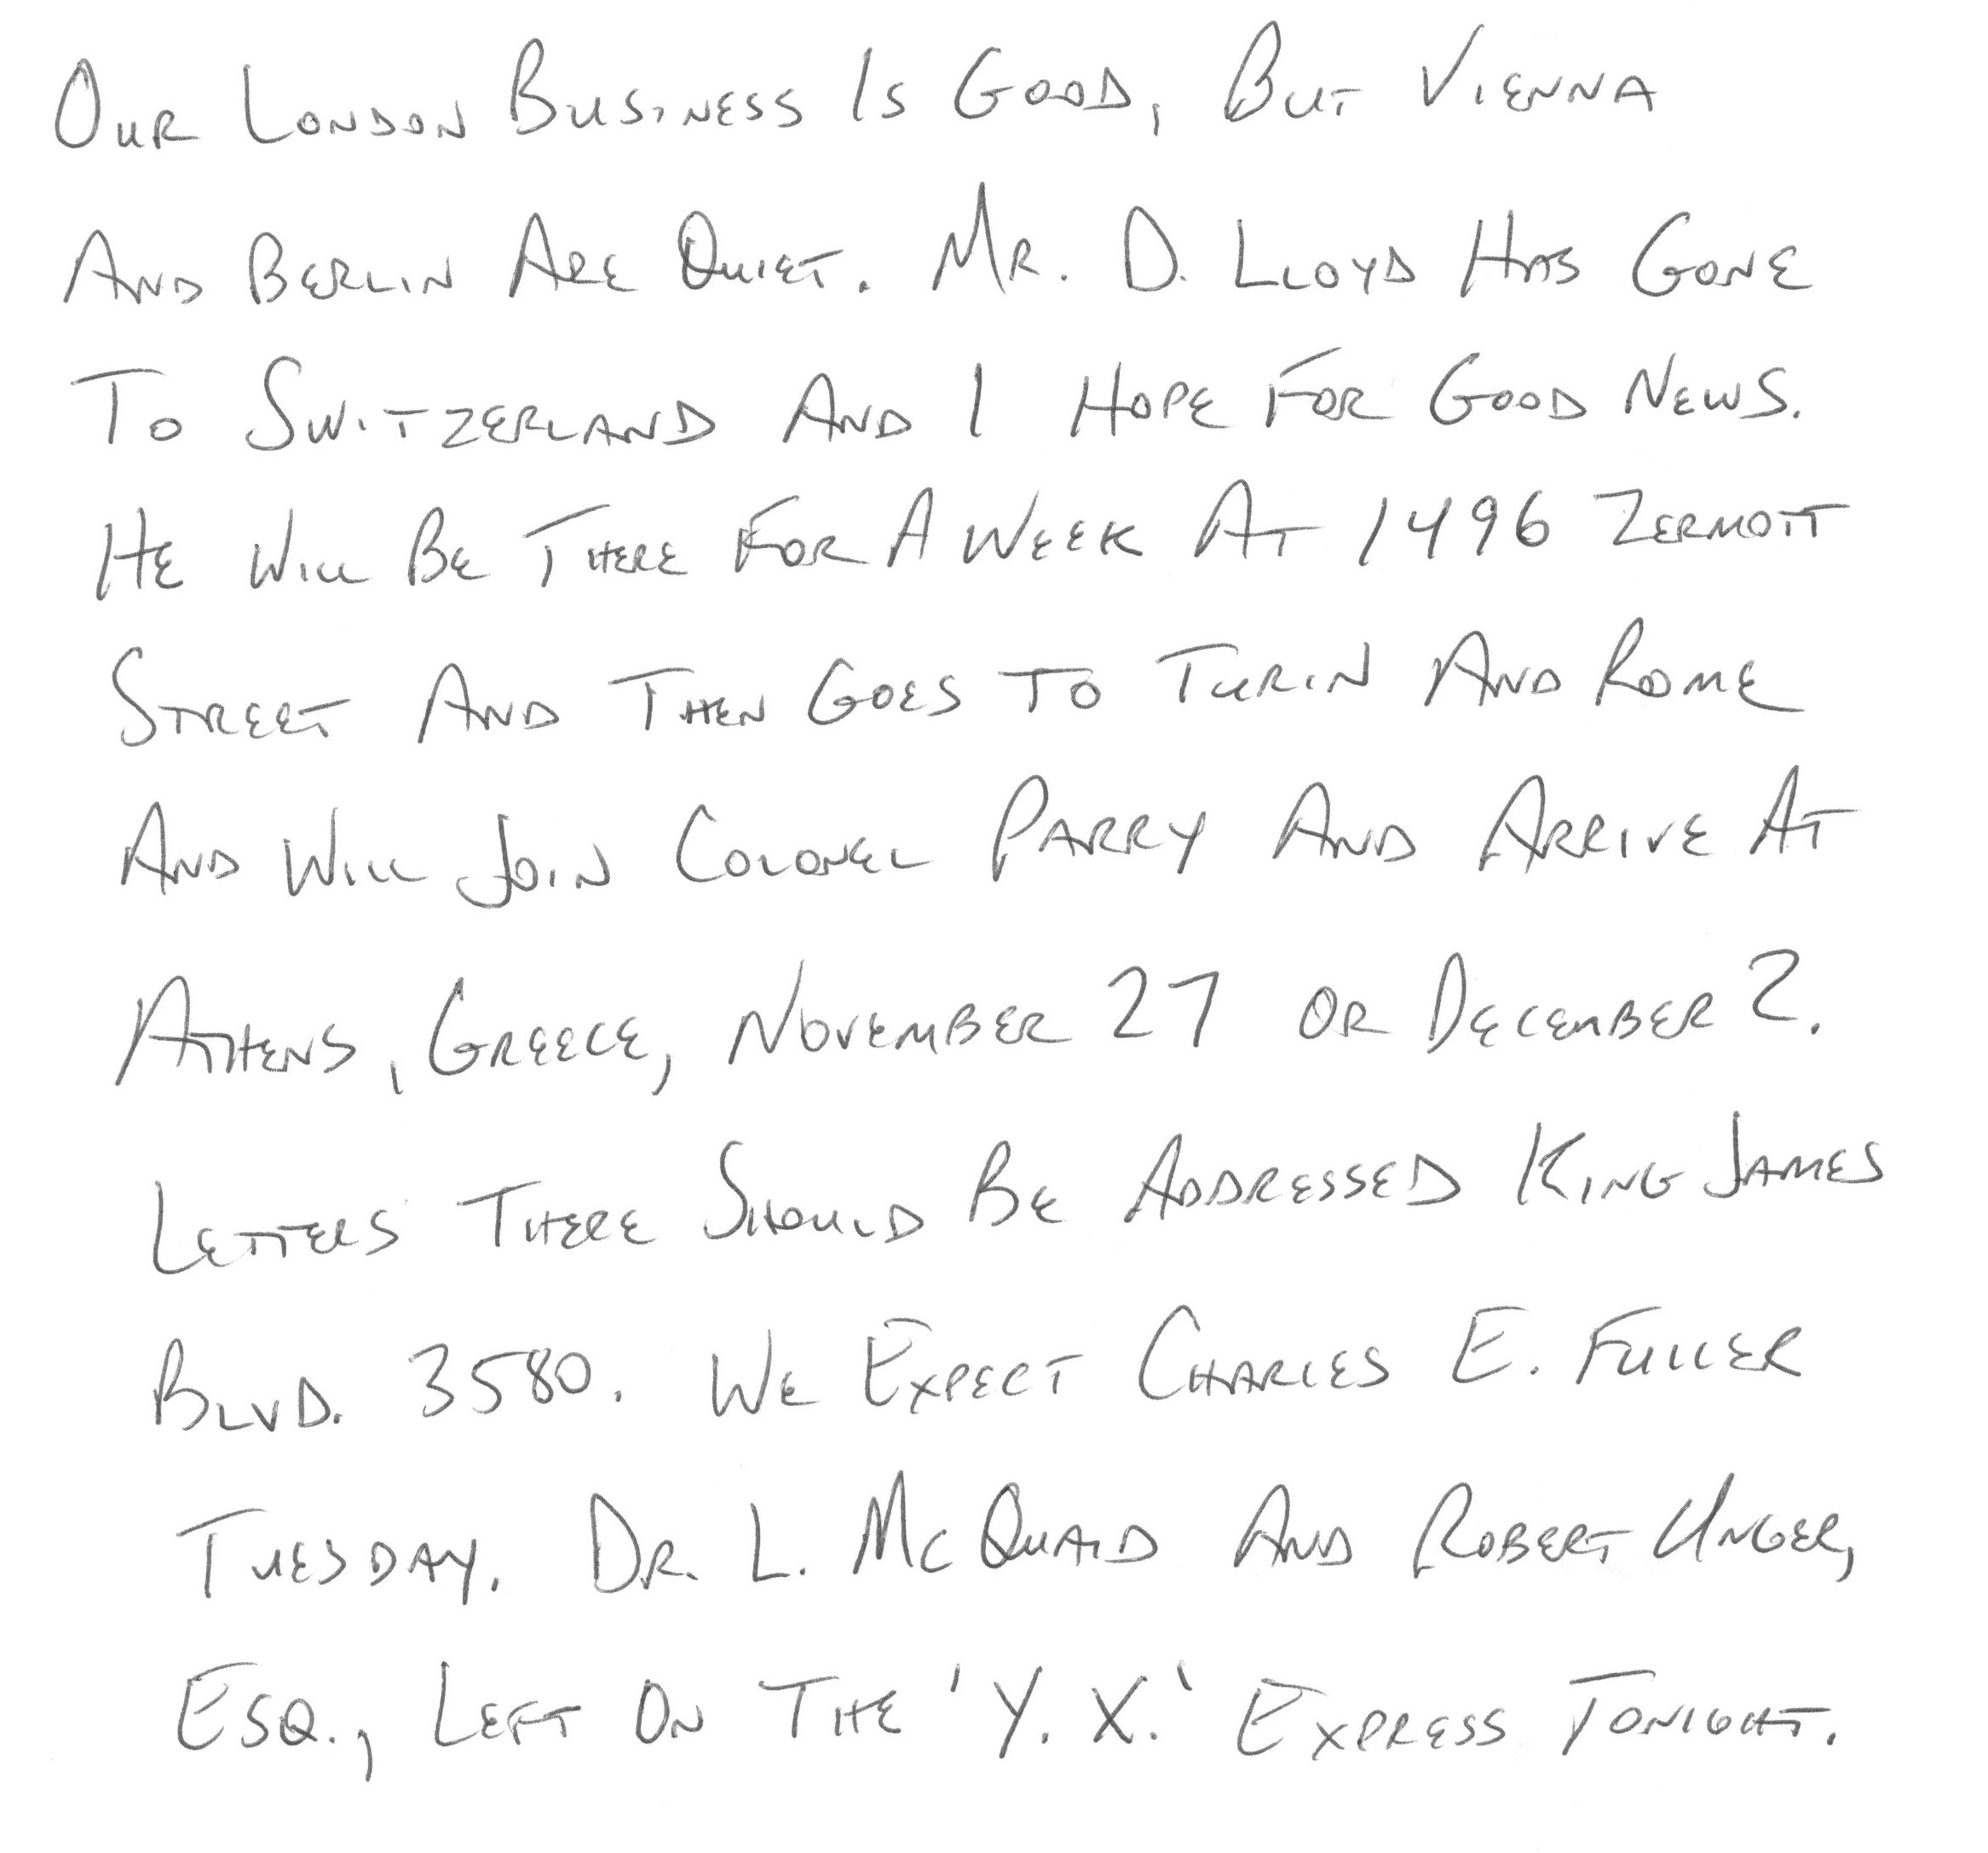 Our London Business Is Good, But Vienna
And Berlin Are Quiet. Mr. D. Lloyd Has Gone
To Switzerland And I Hope For Good News.
He Will Be There For A Week At 1496 Zermott
Street And Then Goes To Turin And Rome
And Will Join Colonel Parry And Arrive At
Athens, Greece, November 27 or December 2.
Letters There Should Be Addressed King James
Blvd. 3580. We Expect Charles E. Fuller
Tuesday. Dr. L. McQuaid And Robert Unger,
Esq., Left On The 'Y. X.' Express Tonight.